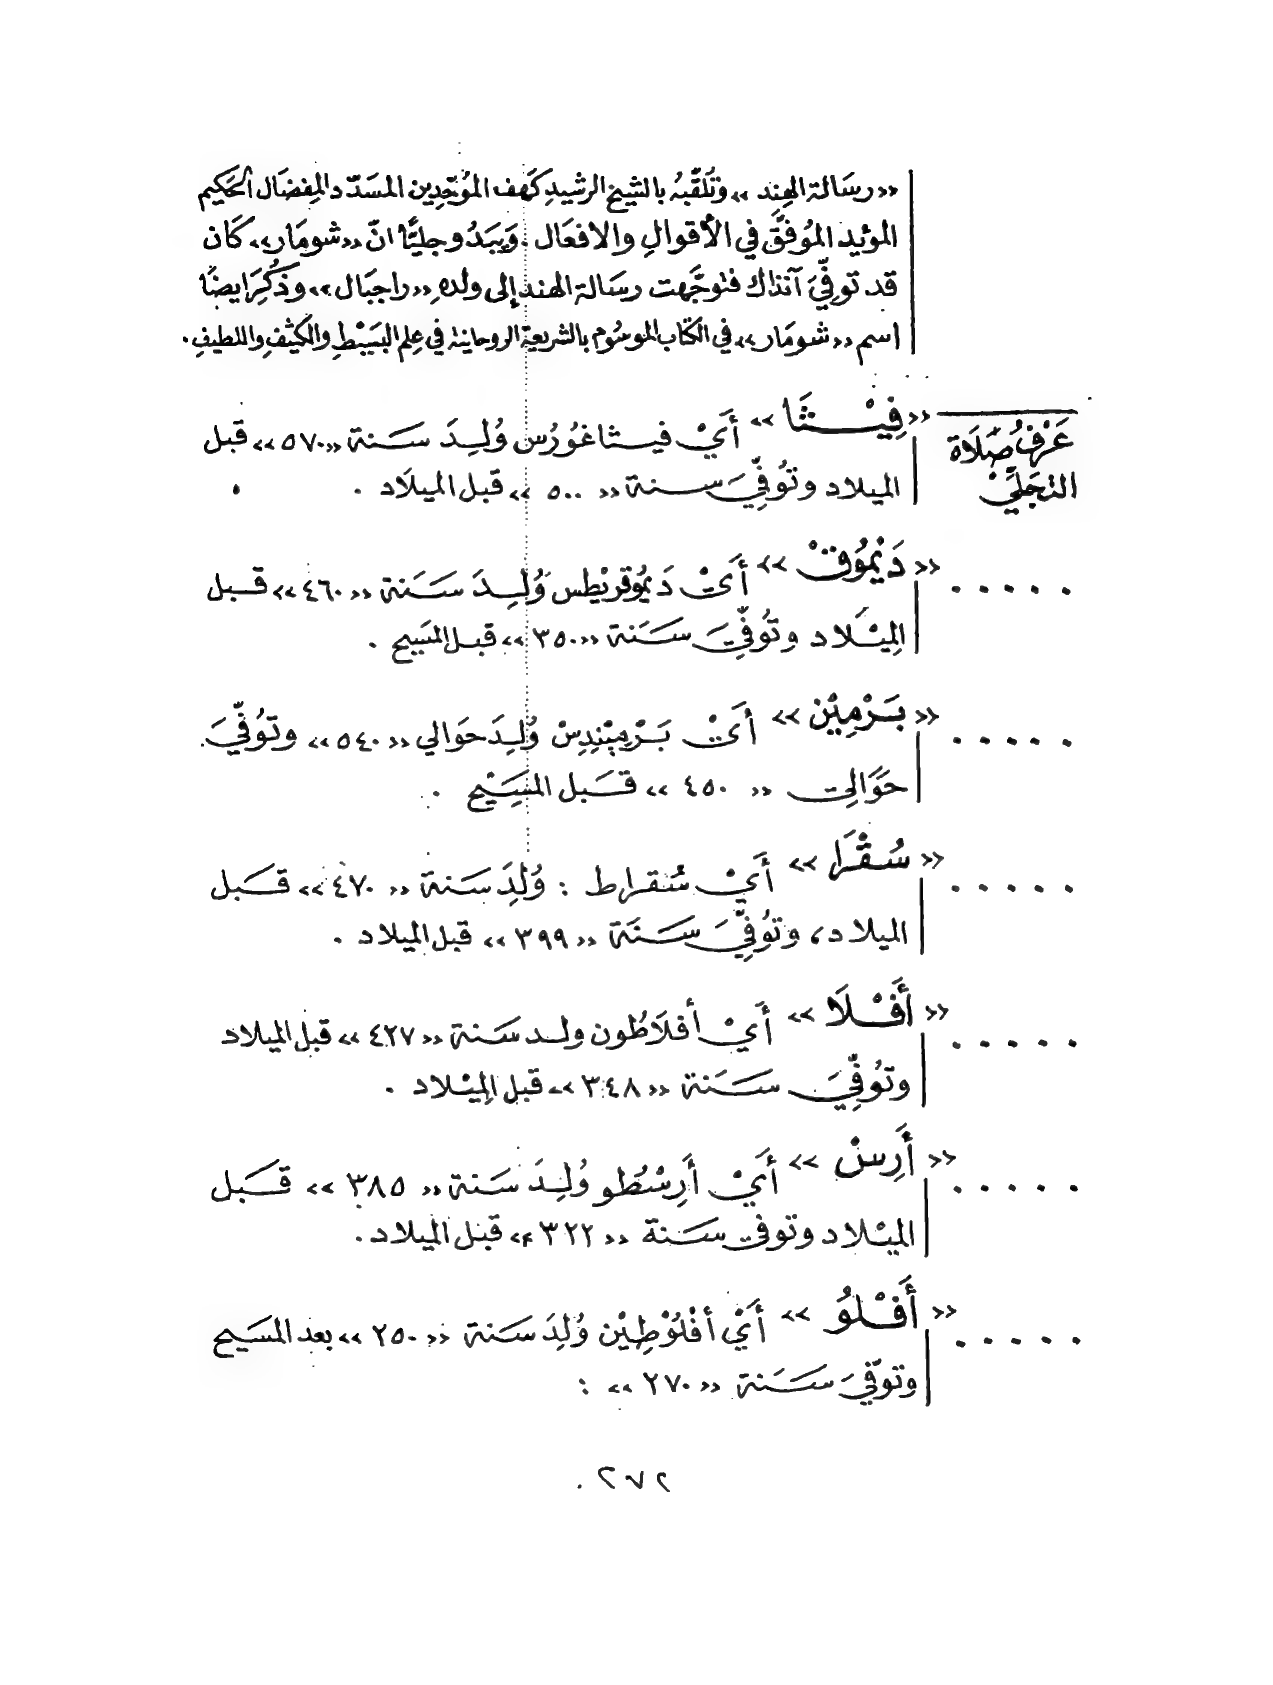 «رسَالة الهِند» وتُلقّبهُ بالشيخ الرشيدِ كَهف المؤَحّدِين المسَدّد المِفضَال الحَكيم
المؤيد المُوفَّق في الأقوالِ والافعَال. وَيبَدُو جليًّا انّ «شومَار» كَان
قد توفِّيَ آنذاك فتوجَّهت رسَالة الهند إلى ولدهِ «راجبَال» وذُكِرَ ايضًا
اسم «شومَار» في الكتاب الموسُوم بالشريعة الروحانية في عِلم البَسِيْطِ والكثيْفِ واللطيفِ.
عَرْفُ صَلَاة
التجَلّي
«فِيْثَا» أَيْ فيثاغُورُس وُلِدَ سَنة «٥٧٠» قبل
الميلاد وتُوُفِّيَ سنة «٥٠٠» قبل الميلَاد .
..... «دَيْمُوقْ» أَيْ دَيمُوقريْطِس وُلِدَ سَنَة «٤٦٠» قَبل
المِيْلَاد وتُوُفِّيَ سَنَة «٣٥٠» قبل المسَيح .
..... «بَرْمِيْن» أَيْ بَرْمِيْنِدِسْ وُلِدَ حَوَالي «٥٤٠» وتوُفِّيَ
حَوَالي «٤٥٠» قَبل المسِيْح .
..... «سُقْرَا» أَيْ سُقراط : وُلِدَ سَنة «٤٧٠» قَبل
الميلاد، وتوُفِّيَ سَنَة «٣٩٩» قبل الميلاد .
..... «أَفْلَا» أَيْ أفلَاطُون ولد سَنة «٤٢٧» قبل الميلاد
وتوُفِّيَ سَنَة «٣٤٨» قبل المِيْلاد .
..... «أَرِسْ» أَيْ أَرِسْطُو وُلِدَ سَنة «٣٨٥» قَبل
الميْلاد وتوفي سَنة «٣٢٢» قبل الميلاد.
..... «أَفْلُو» أَيْ أفْلُوْطِيْن وُلِدَ سَنة «٢٥٠» بعد المسَيح
وتوفّيَ سَنة «٢٧٠» :
٢٧٢ .